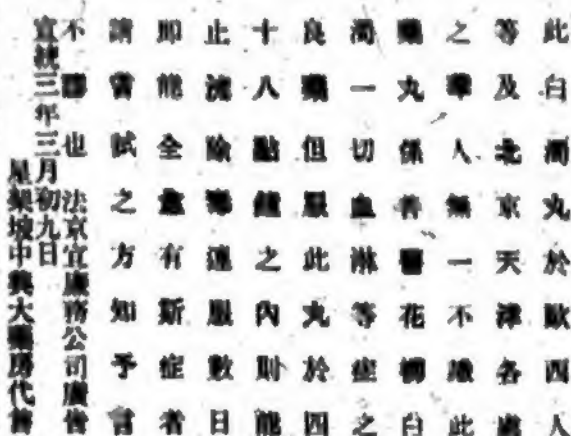 此白濁丸於歐西人
等及北京天津各處
之華人無一不識此
藥丸係善醫花柳白
濁一切血淋等症之
良藥但服此丸於四
十八點鐘之內則能
止除毒連服數日
即能全愈有斯症者
請嘗試之方知予言
不謬也 法京宜廉務公司廣告
宣統三年三月初九日
星架坡中興大藥房代售